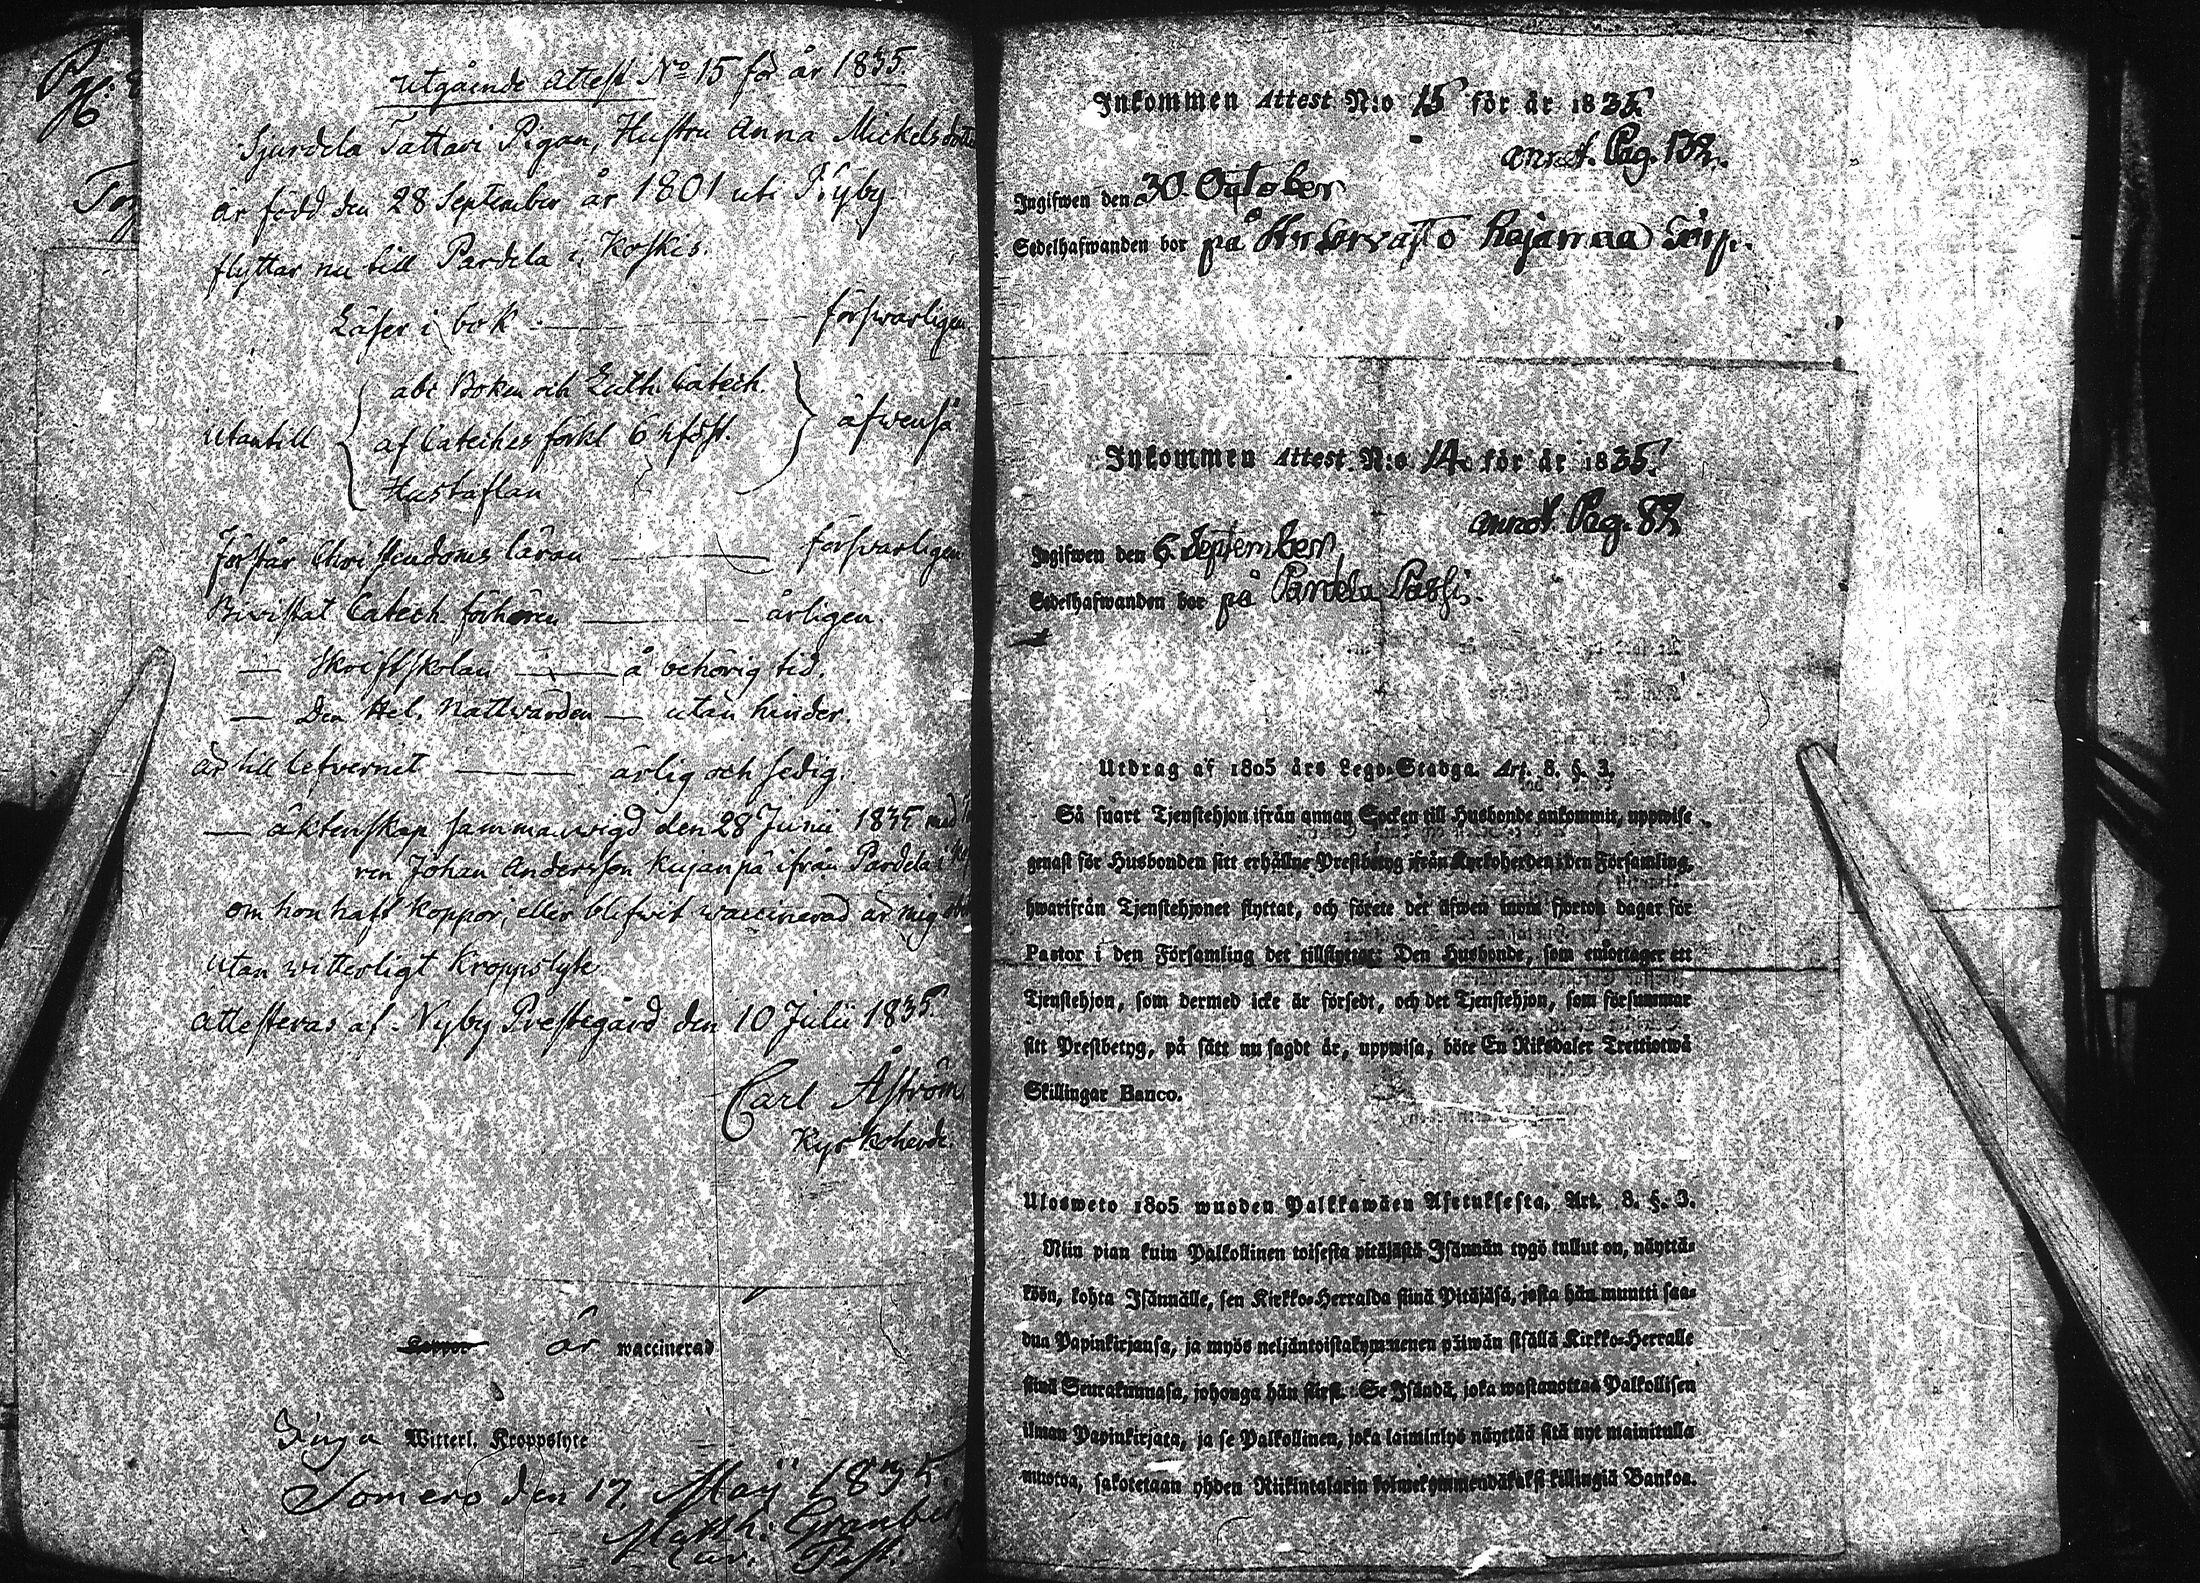 Utgående Attest No 15 för år 1835.
Sjurdela Tattari Pigan, Hustru Anna Mickelsdotte
är född den 28 September år 1801 uti Nyby
flyttar nu till Pardela i Koskis.
Läser i bok försvarligen
Utantill
abc Boken och Luth. Catech.
af Cateches förkl 6 h först.
Hustaflan
äfwenså
Förstår Christendoms läran försvarligen
Bivistat Catech. förhören årligen.
— Skriftskolan å behörig tid.
— Den Hel. Nattwarden — utan hinder.
är till lefvernet ärlig och sedig.
— äktenskap sammanvigd den 28 Junii 1835 med
ren Johan Andersson Kujanpä ifrån Pardela i
om hon haft koppor, eller blifwit waccinerad är mig
utan witterligt kroppslyte
Attesteras af Nyby Prestegård den 10 Julii 1835
Carl Åström
Kyrkoherde.
Koppor är waccinerad
Inga Witterl. Kroppslyte
Somero den 17. Maji 1835.
Matth: Granber
Past:
Inkommen Attest N:o 15 för år 1835.
annot. Pag. 132.
Ingifwen den 30. October
Sedelhafwanden bor på Rajamaa Torp.
Inkommen Attest N:o 14. för år 1835.
annot. Pag. 87
Ingifwen den 6. September
Sedelhafwanden bor på Pardela Passi.
Utdrag af 1805 års Lego-Stadga. Art. 8. §. 3.
Så snart Tjenstehjon ifrån annan Socken till Husbonde ankommit, uppwise
genast för Husbonden sitt erhållne Prestbetyg ifrån Kyrkoherden i den Församling,
hwarifrån Tjenstehjonet flyttat, och förete det äfwen inom fjorton dagar för
Pastor i den Församling det tillflyttat: Den Husbonde, som emottager ett
Tjenstehjon, som dermed icke är försedt, och det Tjenstehjon, som försummar
sitt Prestbetyg, på sätt nu sagdt är, uppwisa, böte En Riksdaler Trettiotwå
Skillingar Banco.
Ulosweto 1805 wuoden Palkkawäen Asetuksesta, Art. 8. §. 3.
Niin pian kuin Palkollinen toisesta pitäjästä Isännän tygö tullut on, näyttä-
köön, kohta Isännälle, sen Kirkko-Herralda siinä Pitäjäsä, josta hän muutti saa-
dua Papinkirjansa, ja myös neljäntoistakymmenen päiwän sisällä Kirkko-Herralle
siinä Seurakunnasa, johonga hän siirsi. Se Isändä, joka wastanottaa Palkollisen
ilman Papinkirjata, ja se Palkollinen, joka laiminlyö näyttää sitä nyt mainitulla
muotoa, sakotetaan yhden Riikintalarin kolmekymmendäkaksi killingiä Bankoa.